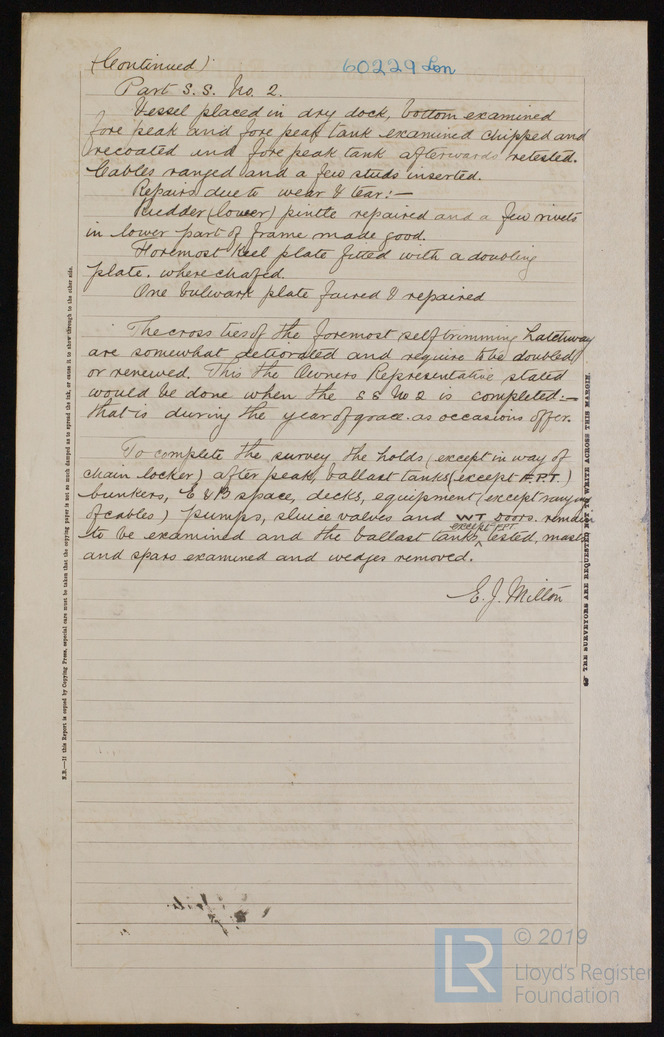 (Continued)
60229 Lon
Part S.S. No. 2.
Vessel placed in dry dock, bottom examined
fore peak and fore peak tank examined chipped and
recoated and fore peak tank afterwards retested.
Cables ranged and a few studs inserted.
Repairs due to wear & tear:—
Rudder (lower) pintle repaired and a few rivets
in lower part of frame made good.
Foremost keel plate fitted with a doubling
plate. where chafed.
One bulwark plate faired & repaired
The cross ties of the foremost self trimming hatchway
are somewhat detiorated and require to be doubled
or renewed. This the Owners Representative stated
would be done when the S S No 2 is completed:—
that is during the year of grace. as occasions offer.
To complete the survey the holds (except in way of
chain locker) after peak, ballast tanks (except F.P.T.)
bunkers, E & B space, decks, equipment (except ranging
of cables) pumps, sluice valves and WT doors. remain
to be examined and the ballast tanks except FPT tested, masts
and spars examined and wedges removed.
E. J. Milton
N.B.—If this Report is copied by Copying Press, especial care must be taken that the copying paper is not so much damped as to spread the ink, or cause it to show through to the other side.
THE SURVEYORS ARE REQUESTED TO WRITE ACROSS THIS MARGIN.
LR
© 2019
Lloyd's Register
Foundation